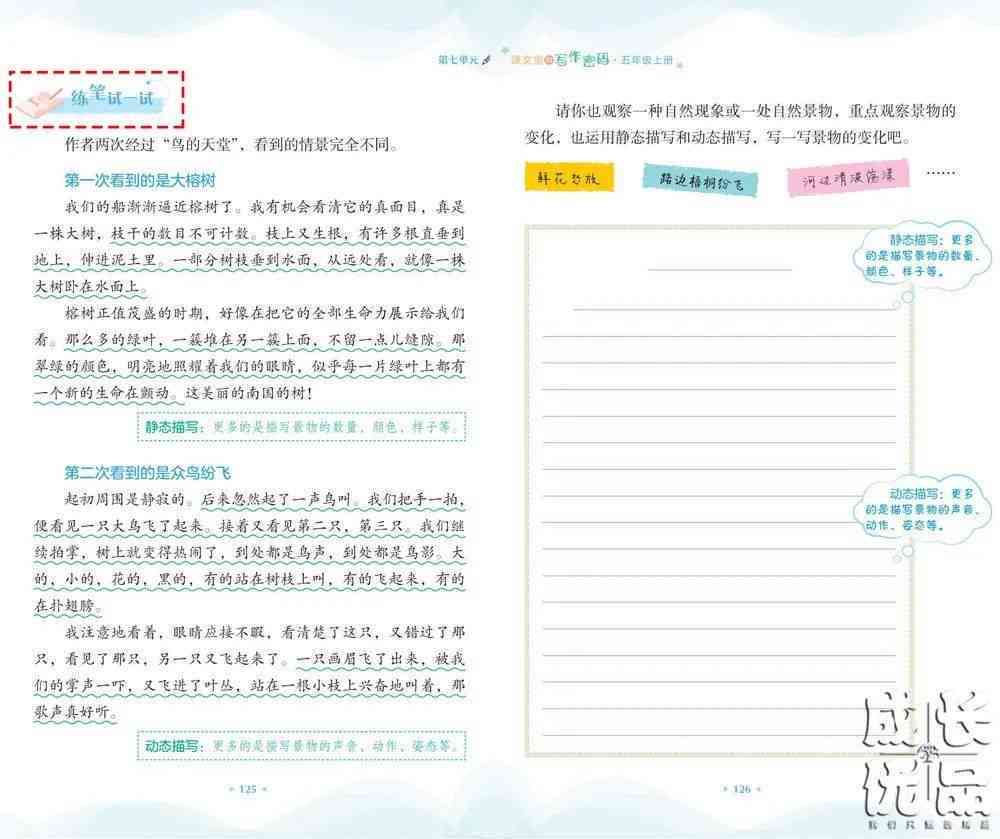 第七单元 课文里的写作密码·五年级上册
练笔试一试
作者两次经过“鸟的天堂”，看到的情景完全不同。
第一次看到的是大榕树
我们的船渐渐逼近榕树了。我有机会看清它的真面目，真是
一株大树，枝干的数目不可计数。枝上又生根，有许多根直垂到
地上，伸进泥土里。一部分树枝垂到水面，从远处看，就像一株
大树卧在水面上。
榕树正值茂盛的时期，好像在把它的全部生命力展示给我们
看。那么多的绿叶，一簇堆在另一簇上面，不留一点儿缝隙。那
翠绿的颜色，明亮地照耀着我们的眼睛，似乎每一片绿叶上都有
一个新的生命在颤动。这美丽的南国的树！
静态描写：更多的是描写景物的数量、颜色、样子等。
第二次看到的是众鸟纷飞
起初周围是静寂的。后来忽然起了一声鸟叫。我们把手一拍，
便看见一只大鸟飞了起来。接着又看见第二只，第三只。我们继
续拍掌，树上就变得热闹了，到处都是鸟声，到处都是鸟影。大
的，小的，花的，黑的，有的站在树枝上叫，有的飞起来，有的
在扑翅膀。
我注意地看着，眼睛应接不暇，看清楚了这只，又错过了那
只，看见了那只，另一只又飞起来了。一只画眉飞了出来，被我
们的掌声一吓，又飞进了叶丛，站在一根小枝上兴奋地叫着，那
歌声真好听。
动态描写：更多的是描写景物的声音、动作、姿态等。
125
请你也观察一种自然现象或一处自然景物，重点观察景物的
变化，也运用静态描写和动态描写，写一写景物的变化吧。
鲜花怒放 路边梧桐纷飞 河边清波荡漾 ……
静态描写：更多
的是描写景物的数量、
颜色、样子等。
动态描写：更多
的是描写景物的声音、
动作、姿态等。
126
成长
优品